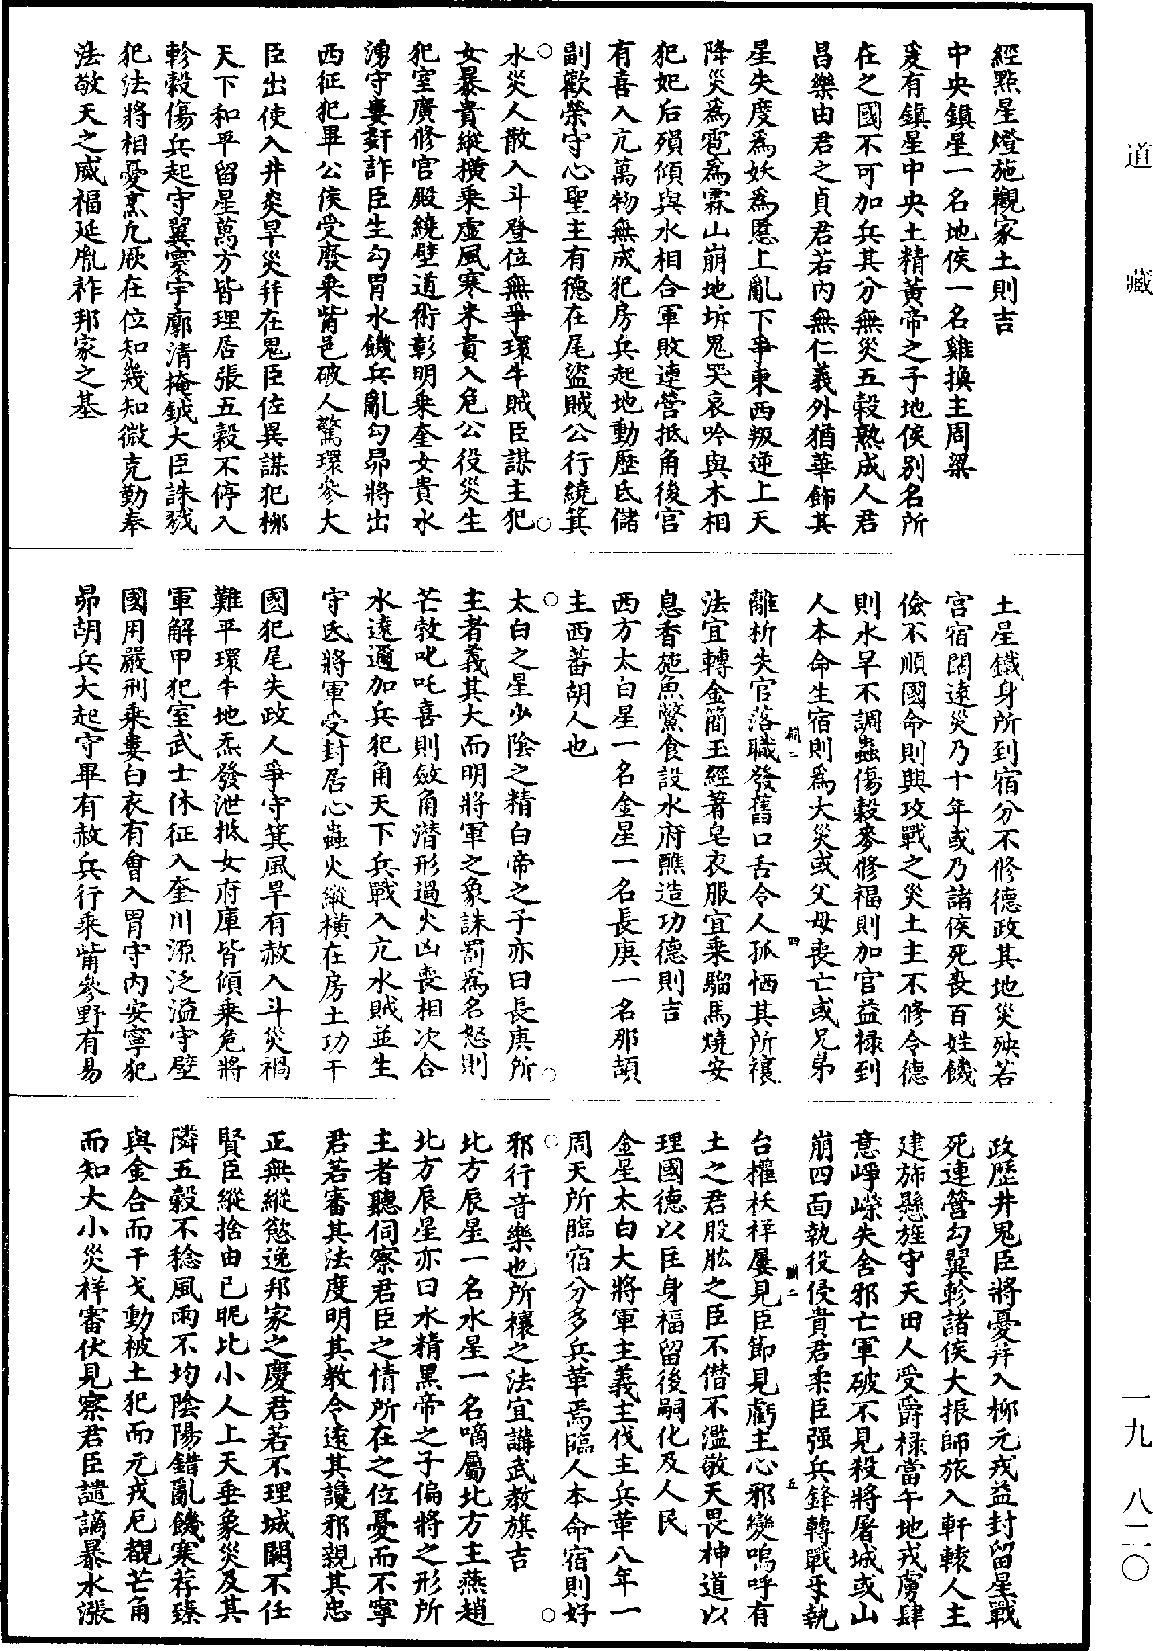 經點星燈施觀家土則吉
中央鎮星一名地侯一名雞換主周梁
爰有鎮星中央土精黃帝之子地侯別名所
在之國不可加兵其分無災五穀熟成人君
昌樂由君之貞君若內無仁義外猶華飾其
星失度為妖為慝上亂下爭東西叛逆上天
降災為雹為霖山崩地坼鬼哭哀吟與木相
犯妃后殞傾與水相合軍敗連營抵角後宮
有喜入亢萬物無成犯房兵起地動歷氐儲
副歡榮守心聖主有德在尾盜賊公行繞箕
水災人散入斗登位無爭環牛賊臣謀主犯
女暴貴縱橫乘虛風寒米貴入危公役災生
犯室廣修宮殿繞壁道術彰明乘奎女貴水
湧守婁姧詐臣生勾胃水饑兵亂勾昴將出
西征犯畢公侯受廢乘觜邑破人驚環參大
臣出使入井炎旱災并在鬼臣佐異謀犯柳
天下和平留星萬方皆理居張五穀不停入
軫穀傷兵起守翼寰宇廓清掩鉞大臣誅殘
犯法將相憂烹凢厥在位知幾知微克勤奉
法敬天之威福延胤祚邦家之基
土星鐵身所到宿分不修德政其地災殃若
宮宿闊遠災乃十年或乃諸侯死喪百姓饑
儉不順國命則與攻戰之災土主不修令德
則水旱不調蟲傷穀麥修福則加官益祿到
人本命生宿則為大災或父母喪亡或兄弟
離析失官落職發舊口舌令人孤恓其所禳
法宜轉金簡玉經著皂衣服宜乘騮馬燒安
息香施魚鱉食設水府醮造功德則吉
西方太白星一名金星一名長庚一名那頡
主西蕃胡人也
太白之星少陰之精白帝之子亦曰長庚所
主者義其大而明將軍之象誅罰為名怒則
芒敎叱吒喜則斂角潛形過火凶喪相次合
水遠邇加兵犯角天下兵戰入亢水賊並生
守氐將軍受封居心蟲火縱橫在房土功干
國犯尾失政人爭守箕風旱有赦入斗災禍
難平環牛地炁發泄抵女府庫皆傾乘危將
軍解甲犯室武士休征入奎川源泛溢守壁
國用嚴刑乘婁白衣有會入胃守內安寧犯
昴胡兵大起守畢有赦兵行乘觜參野有易
政歷井鬼臣將憂并入柳元戎益封留星戰
死連營勾翼軫諸侯大振師旅入軒轅人主
建旆懸旌守天田人受爵祿當午地戎虜肆
意崢嶸失舍邪亡軍破不見殺將屠城或山
崩四面執役侵貴君柔臣强兵鋒轉戰牙執
台權袄祥屢見臣節見虧主心邪變嗚呼有
土之君股肱之臣不僭不濫敬天畏神道以
理國德以匡身福留後嗣化及人民
金星太白大將軍主義主伐主兵革八年一
周天所臨宿分多兵革焉臨人本命宿則好
邪行音樂也所禳之法宜講武教旗吉
北方辰星一名水星一名嘀屬北方主燕趙
北方辰星亦曰水精黑帝之子偏將之形所
主者聽伺察君臣之情所在之位憂而不寧
君若審其法度明其教令遠其讒邪親其忠
正無縱慾逸邦家之慶君若不理城闕不任
賢臣縱捨由已昵比小人上天垂象災及其
隣五穀不稔風雨不均陰陽錯亂饑寒荐臻
與金合而干戈動被土犯而元戎厄觀芒角
而知大小災祥審伏見察君臣譴謫暴水漲
道藏
一九 八二〇